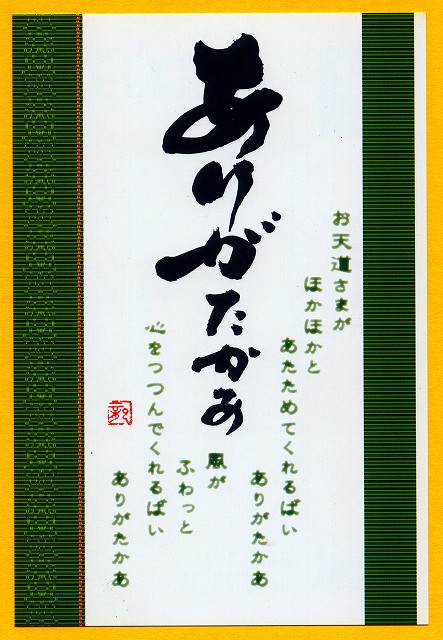 ありがたかあ
お天道さまが
ほかほかと
あたためてくれるばい
ありがたかあ
風が
ふわっと
心をつつんでくれるばい
ありがたかあ